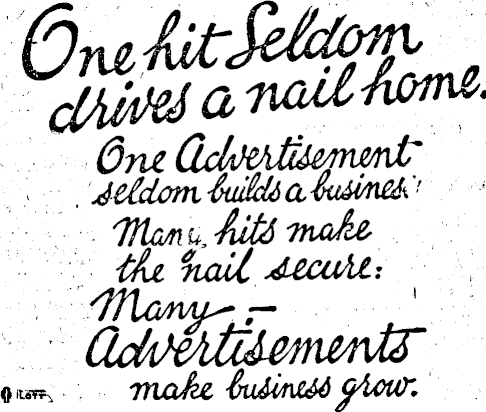 One hit Seldom
drives a nail home.
One Advertisement
seldom builds a busines
Many hits make
the nail secure:
Many —
Advertisements
make business grow.